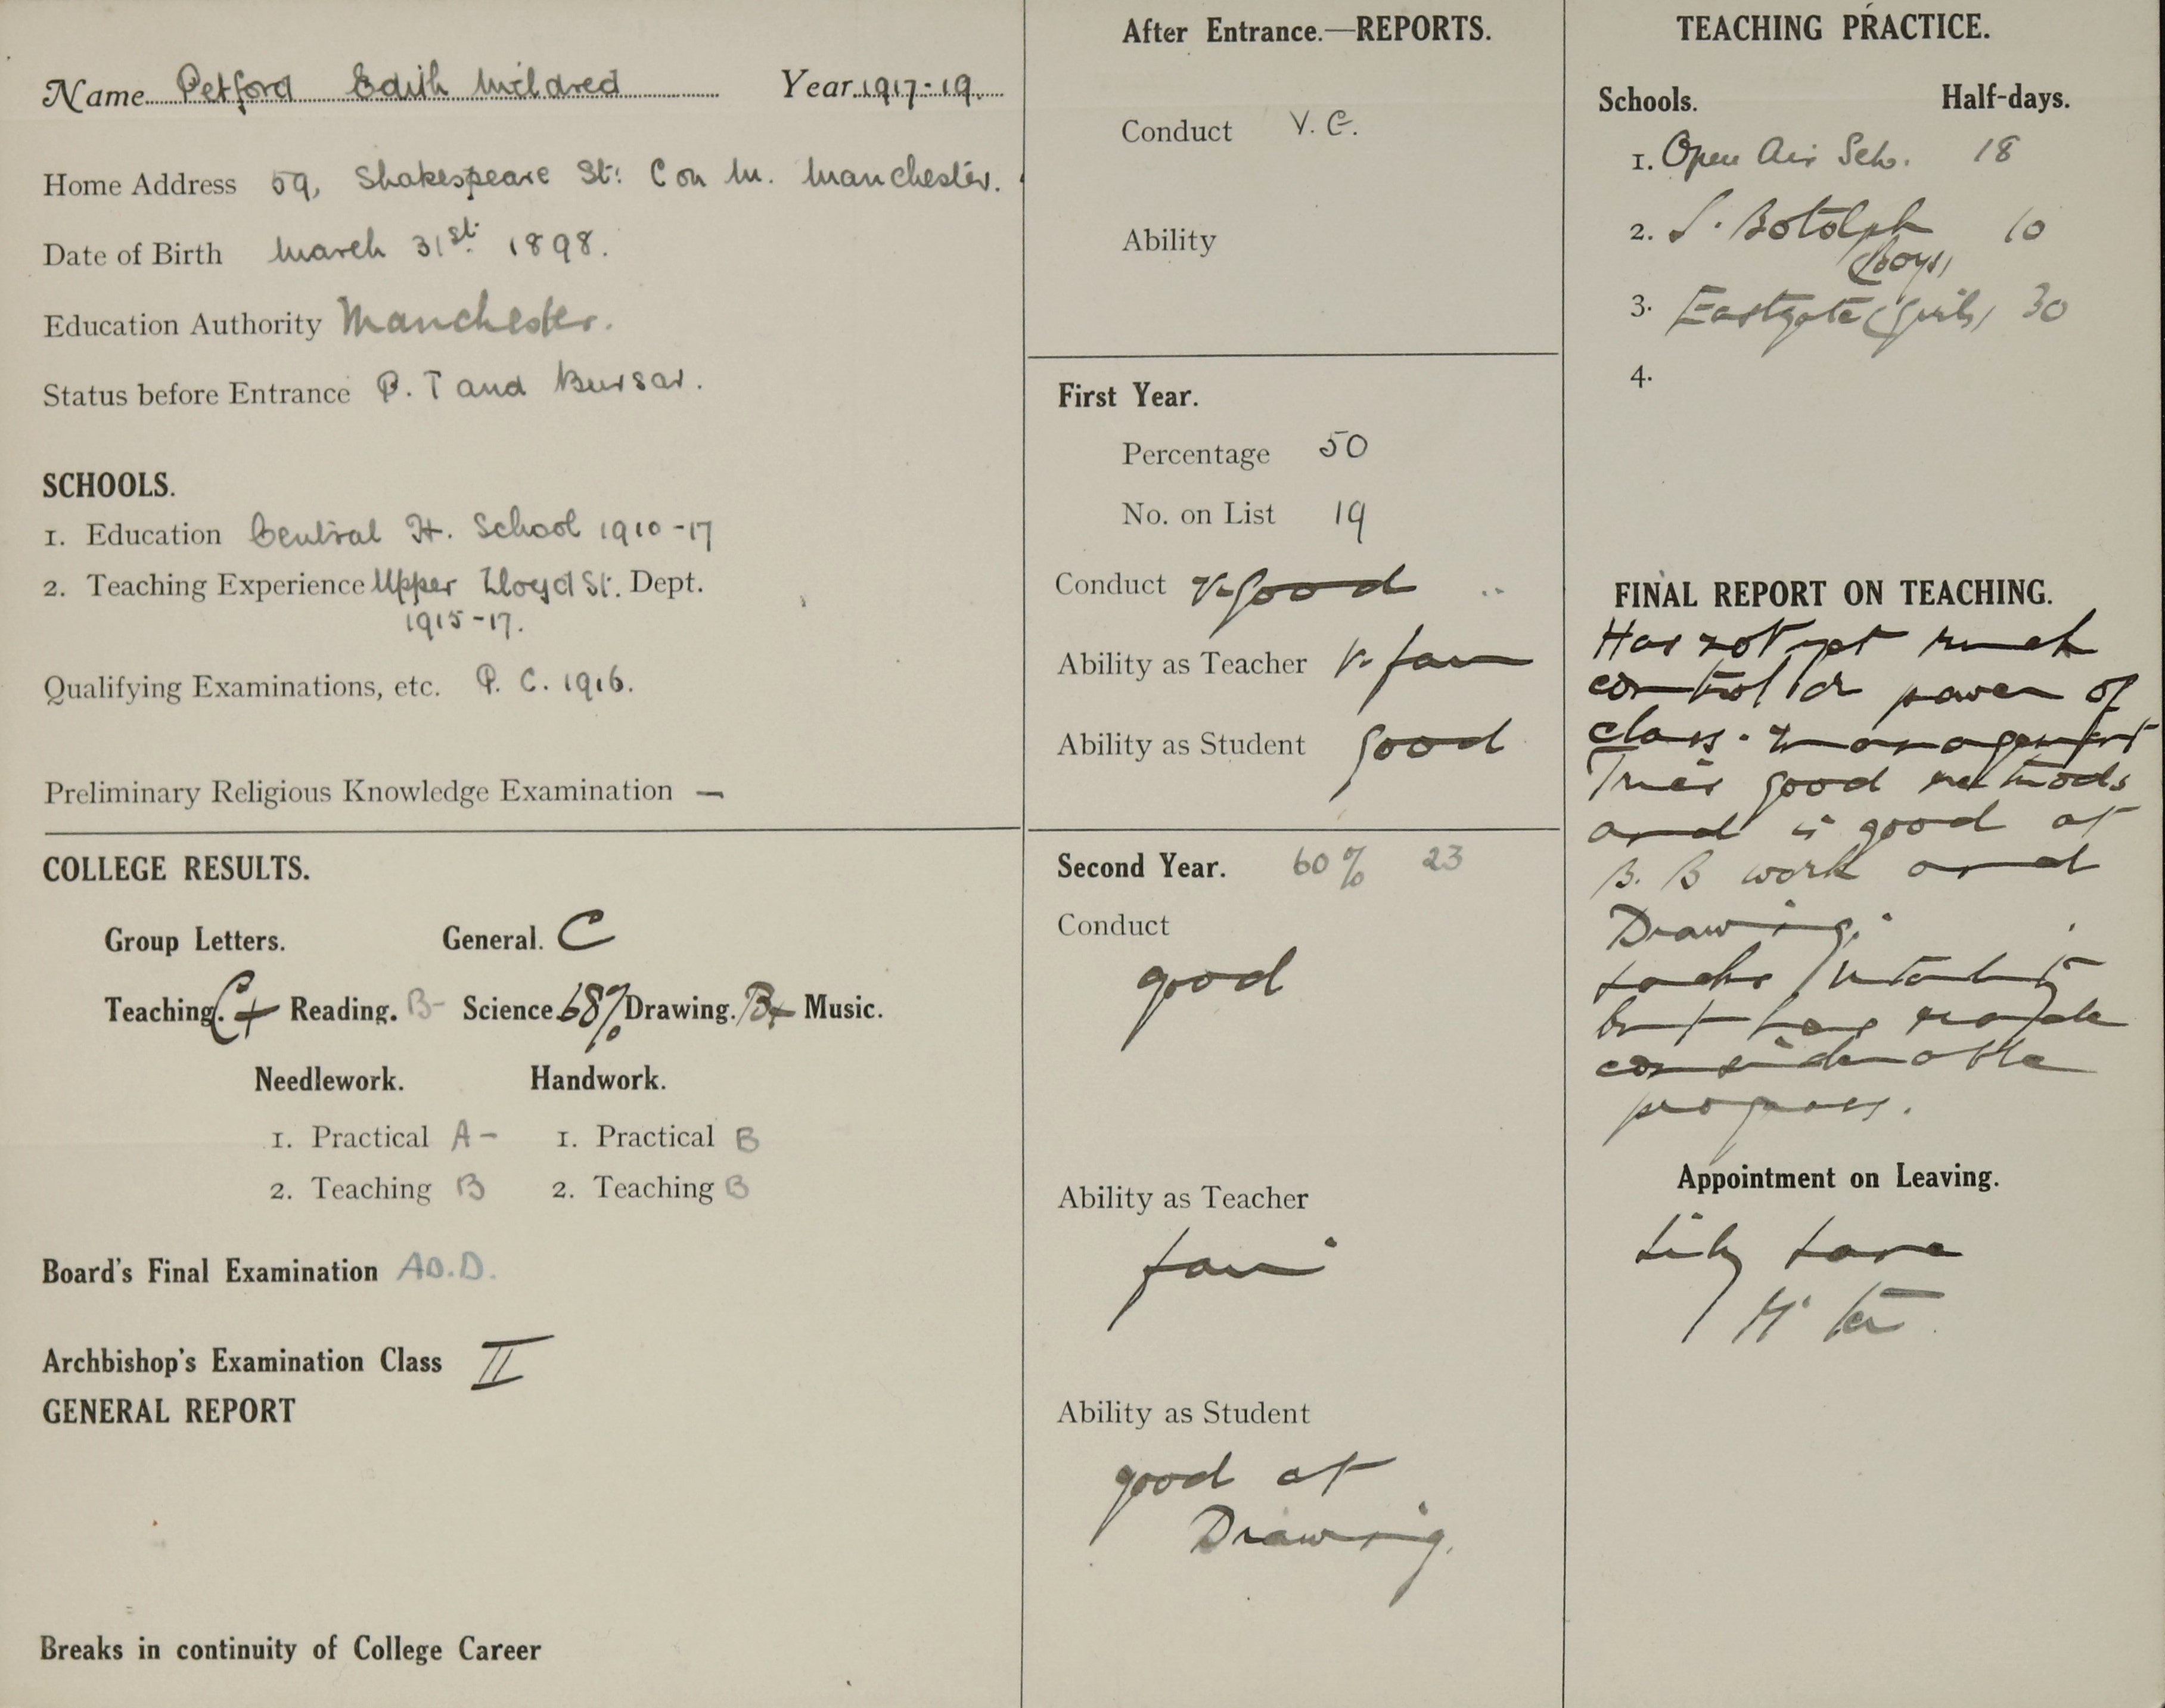 Name Petford Edith Mildred Year 1917-19.
Home Address 59, Shakespeare St: C on M. Manchester.
Date of Birth March 31st 1898.
Education Authority Manchester.
Status before Entrance P. T and Bursar.
SCHOOLS.
1. Education Central H. School 1910-17
2. Teaching Experience Upper Lloyd St. Dept.
1915-17.
Qualifying Examinations, etc. P. C. 1916.
Preliminary Religious Knowledge Examination —
COLLEGE RESULTS.
Group Letters. General. C
Teaching. C+ Reading. B- Science 68% Drawing. B+ Music.
Needlework. Handwork.
1. Practical A- 1. Practical B
2. Teaching B 2. Teaching B
Board's Final Examination AD.D.
Archbishop's Examination Class II
GENERAL REPORT
Breaks in continuity of College Career
After Entrance.—REPORTS.
Conduct V. G.
Ability
First Year.
Percentage 50
No. on List 19
Conduct v. good
Ability as Teacher v. fair
Ability as Student good
Second Year. 60% 23
Conduct
good
Ability as Teacher
fair
Ability as Student
good at
Drawing.
TEACHING PRACTICE.
Schools. Half-days.
1. Open Air Sch. 18
2. S. Botolph 10
(boys)
3. Eastgate (girls) 30
4.
FINAL REPORT ON TEACHING.
Has not got much
control or power of
class-management
Tries good methods
and is good at
B. B work and
Drawing.
Lacks vitality
but has made
considerable
progress.
Appointment on Leaving.
Lily Lane
M'ter